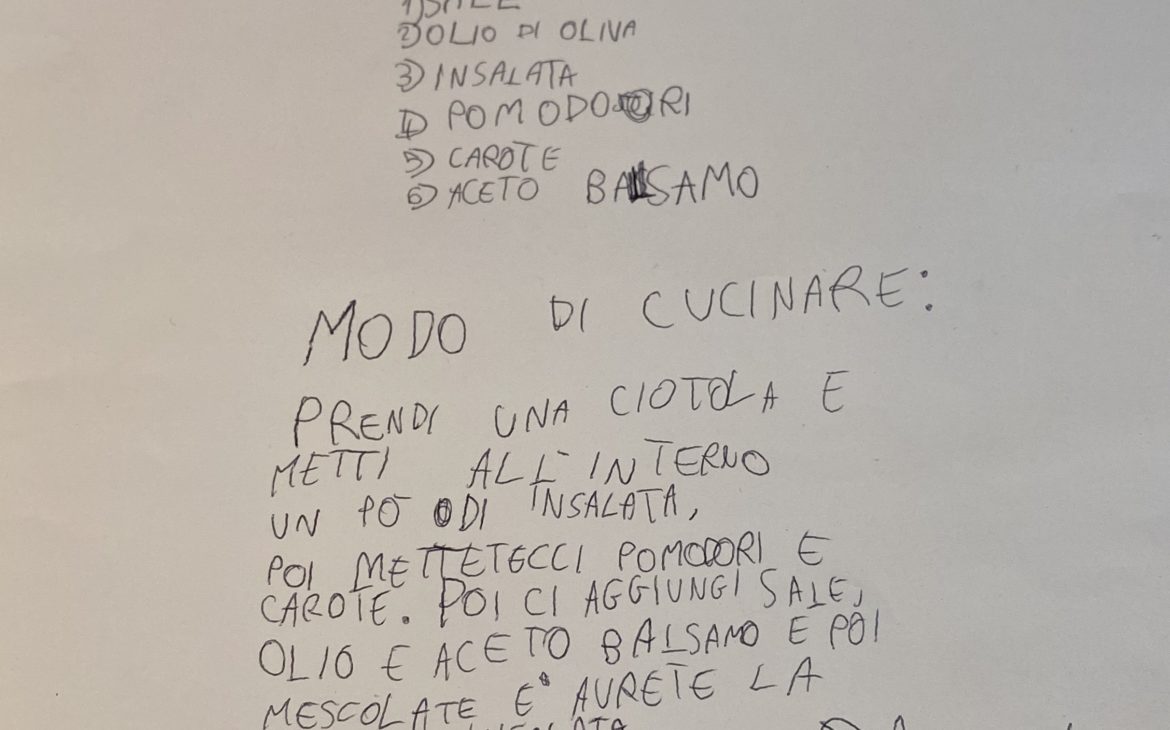 1) SALE
2) OLIO DI OLIVA
3) INSALATA
4) POMODORI
5) CAROTE
6) ACETO BALSAMO
MODO DI CUCINARE:
PRENDI UNA CIOTOLA E
METTI ALL'INTERNO
UN PO' DI INSALATA,
POI METTETECCI POMODORI E
CAROTE. POI CI AGGIUNGI SALE,
OLIO E ACETO BALSAMO E POI
MESCOLATE E AURETE LA